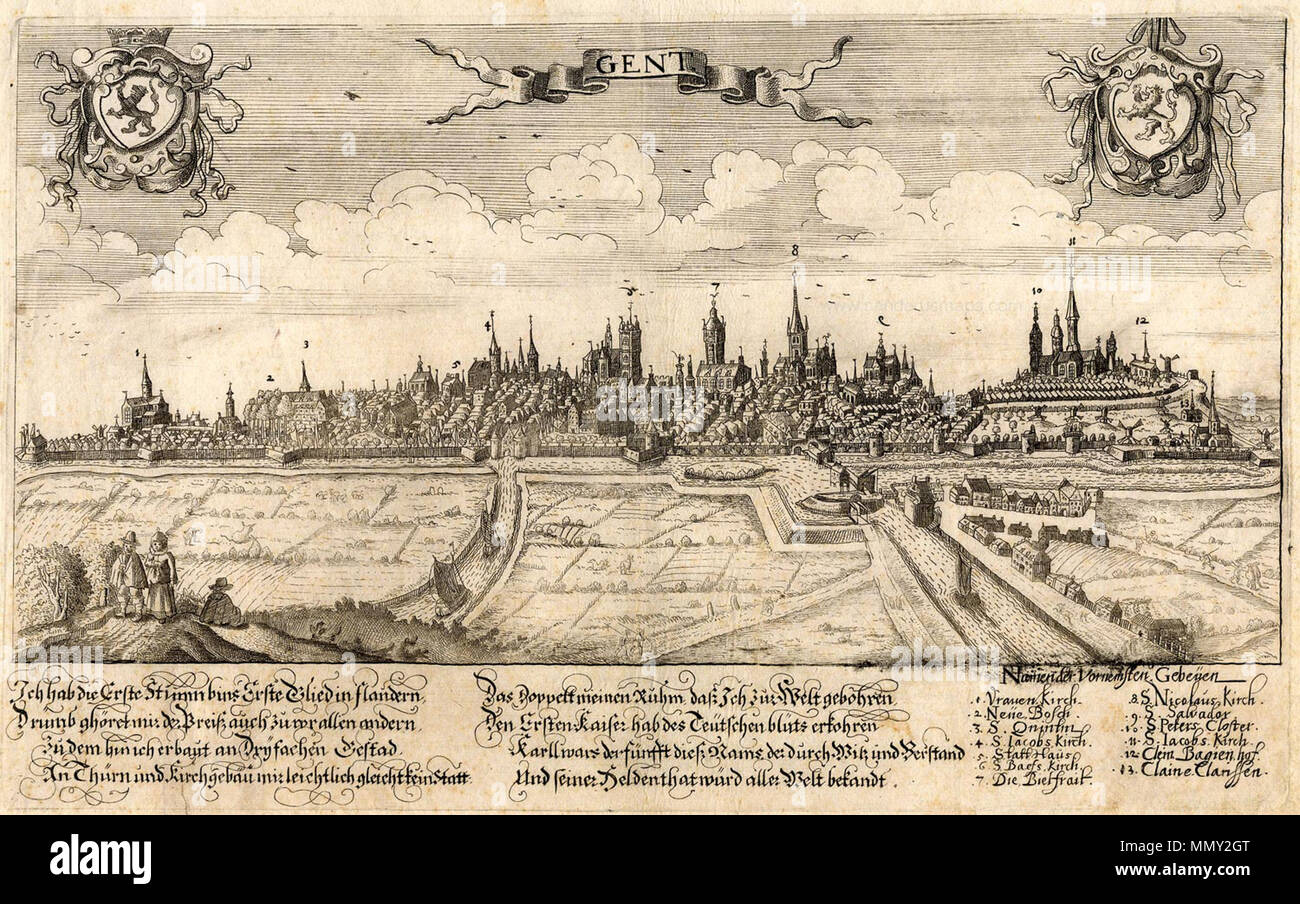 GENT
8
11
7
10
6
4
9
12
3
1
5
2
Ich hab die Erste Stimm bins Erste Glied in flandern,
Drumb ghöret mir der Preiß auch zu vor allen andern
Zu dem bin ich erbaut an Dryfachen Gestad
An Thurn und Kirchgebäu mir leichtlich gleicht kein Statt.
Das Doppelt meinen Ruhm, daß Ich zur Welt gebohren
Den Ersten Kaiser hab des Teutschen bluts erkohren
Karll wars der fünfft dieß Nams der durch Witz und Verstand
Und seiner Heldenthat ward aller Welt bekandt.
Namen der Vornemsten Gebeÿen
1. Vrauen Kirch.
2. Neue Bosch
3. S. Quintin
4. S. Iacobs Kirch.
5. Statt Haus
6. S. Baefs Kirch.
7. Die Bielfrait.
8. S. Nicolaus Kirch.
9. S. Salvador
10. S. Peters Closter.
11. S. Iacobs Kirch.
12. Clein Bagien hof
13. Claine Clarissen.
alamy
a
alamy
Image ID: MMY2GT
www.alamy.com